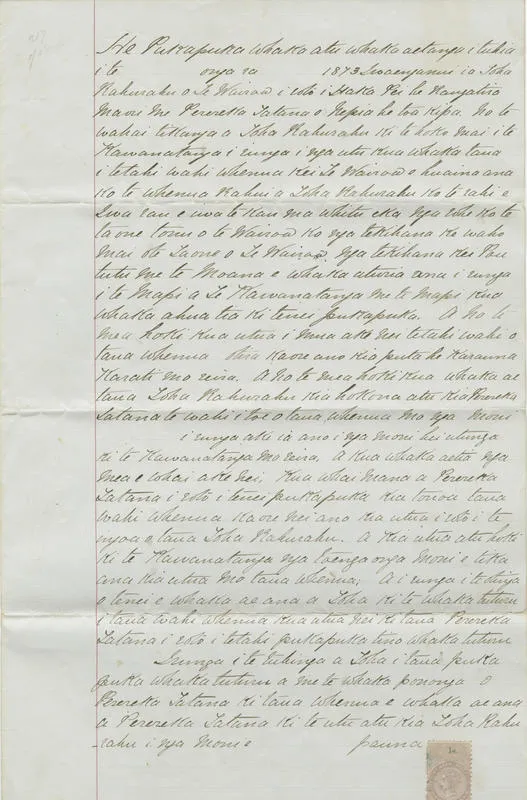 He Pukapuka whaka atu whaka aetanga i tuhia
i te onga ra 1873 Iwaenganui i a Ioha
Kahurahu o Te Wairoa i roto i Haka Pei he Rangatira
Maori me Perereka Tatana o Nepia he toa kipa. No te
wahai tikanga a Ioha Kahurahu ki te hoko mai i te
Kawanatanga i runga i nga utu kua whaka taua
i tetahi wahi whenua kei Te Wairoa e huaina ana
ko te whenua Rahui a Ioha Kahurahu ko te rahi e
rua rau e wa te kau ma whitu eka nga rohe ko te
taone tonu o te Wairoa ko nga tekihana ke waho
mai o te Taone o Te Wairoa nga tekihana kei Pou
tutu me te Moana e whaka aturia ana i runga
i te Mapi a Te Kawanatanga me te mapi kua
whaka ahua tia ki tenei pukapuka. A no te
mea hoki kua utua i mua ake nei tetahi wahi o
taua whenua otira kaore ano kia puta he Karauna
Karati mo reira. A no te mea hoki kua whaka ae
taua Ioha Kahurahu kia hokona atu kia Perereka
Tatana te wahi i toe o taua whenua mo nga moni
i runga ake ia ano i nga moni hei utunga
ki te Kawanatanga mo reira. A kua whaka aetia nga
mea e whai ake nei, Kua whai mana a Perereka
Tatana i roto i tenei pukapuka kia tonoa taua
wahi whenua kaore nei ano kia utua i roto i te
ingoa o taua Ioha Kahurahu. A kia utua atu hoki
ki te Kawanatanga nga toenga onga Moni e tika
ana kia utua mo taua whenua; A i runga i te hainga
o tenei e whaka ae ana a Ioha ki te whaka tuturu
i taua wahi whenua kua utua nei ki taua Perereka
Tatana i roto i tetahi pukapuka tino whaka tuturu
I runga i te tuhinga a Ioha i taua puka
puka whaka tuturu a me te whaka pononga o
Perereka Tatana ki taua whenua e whaka ae ana
a Perereka Tatana ki te utu atu kia Ioha Kahu
rahu i nga Moni e pauna